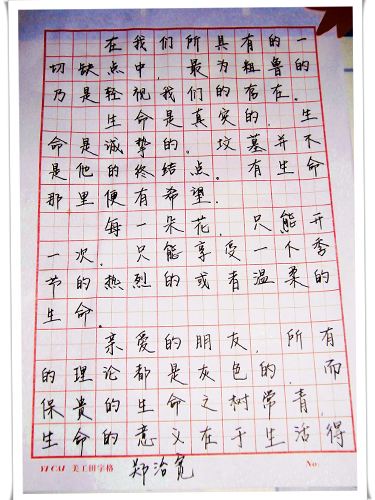 在我们所具有的一
切缺点中，最为粗鲁的
乃是轻视我们的存在。
生命是真实的，生
命是诚挚的。坟墓并不
是他的终结点。有生命
那里便有希望。
每一朵花，只能开
一次，只能享受一个季
节的热烈的或者温柔的
生命。
亲爱的朋友，所有
的理论都是灰色的，而
保贵的生命之树常青，
生命的意义在于生活得
YI CAI 美工田字格 郑治宽 No: